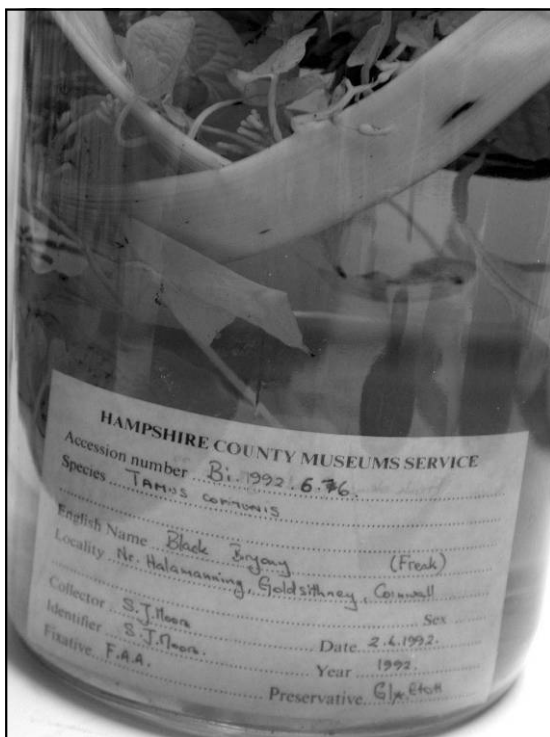 HAMPSHIRE COUNTY MUSEUMS SERVICE
Accession number Bi. 1992. 6. 76.
Species TAMUS COMMUNIS
English Name Black Bryony (Freak)
Locality Nr. Halamanning, Goldsithney, Cornwall
Sex
Collector S.J.Moore
Date 2.6.1992.
Identifier S.J.Moore.
Year 1992.
Fixative F.A.A.
Preservative